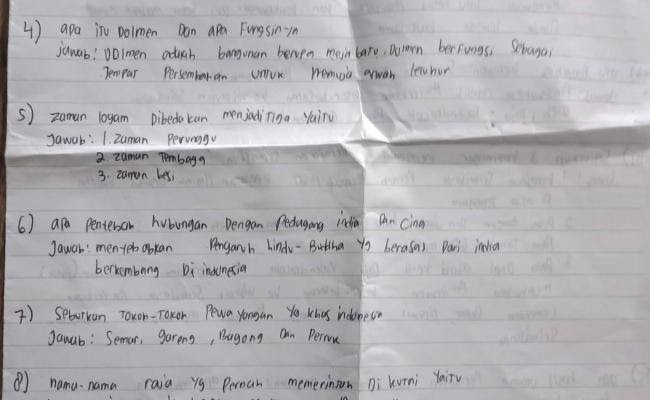 4) apa itu Dolmen Dan apa Fungsinya
Jawab: DOlmen adalah bangunan berupa meja batu, Dolmen berfungsi sebagai
Tempat Persembahan untuk memuja arwah leluhur
5) zaman logam Dibedakan menjadi Tiga Yaitu
Jawab: 1. zaman Perunggu
2. zaman Tembaga
3. zaman besi
6) apa Penyebab hubungan Dengan Pedagang india Dan Cina
Jawab: menyebabkan Pengaruh hindu-Buddha Yg berasal Dari india
berkembang Di indonesia
7) Sebutkan TOKOh-TOKOh Pewayangan Yg khas indonesia
Jawab: Semar, gareng, Bagong Dan Petruk
8) nama-nama raja Yg Pernah memerintah Di kutai Yaitu